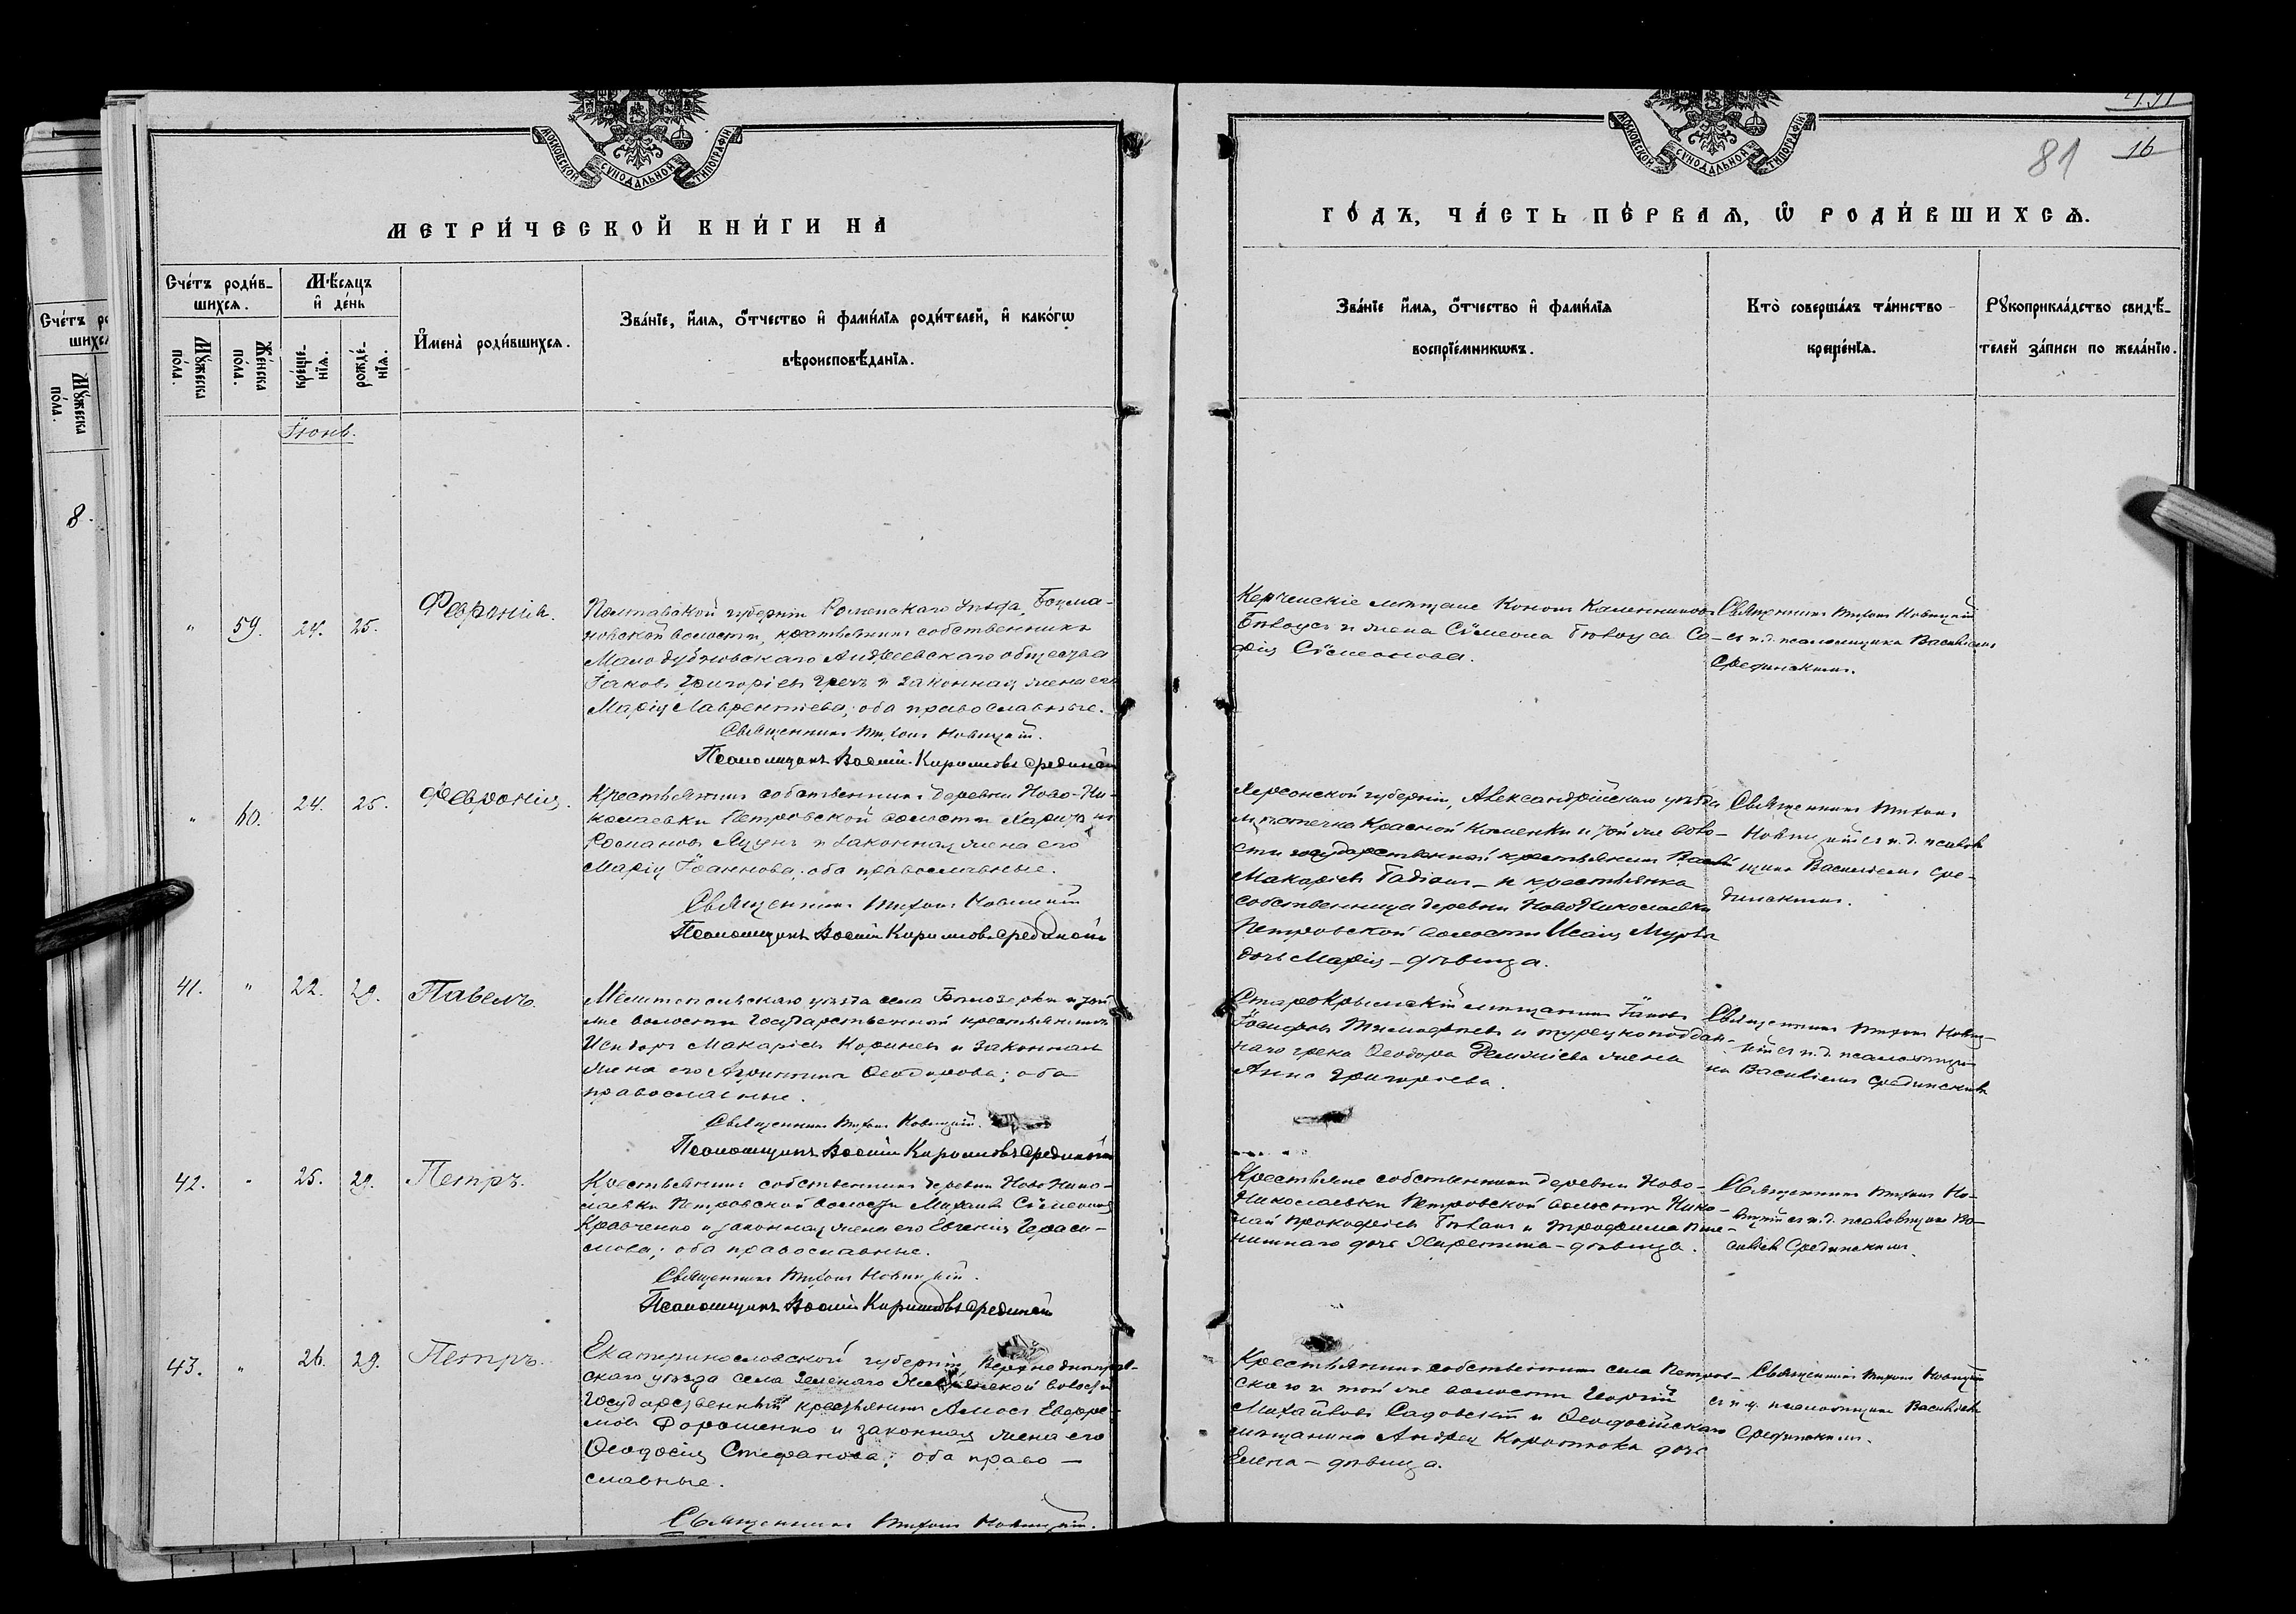 МОСКОВСКОЙ СѴНОДАЛЬНОЙ ТИПОГРАФІИ
МЕТРИ́ЧЕСКОЙ КНИ́ГИ НА
Сче́тъ роди́в-
шихсѧ.
Мѣ́сѧцъ
и҆ де́нь
Мꙋ́жеска
по́ла.
Же́нска
по́ла.
креще́-
нїѧ.
рожде́-
нїѧ.
И҆мена̀ роди́вшихсѧ.
Зва́нїе, и҆́мѧ, ѻ҆́тчество и҆ фами́лїѧ роди́телей, и҆ како́гѡ
вѣроисповѣ́данїѧ.
Іюнь.
" 59. 24. 25.
Февронія.
Полтавской губерніи Роменскаго уѣзда,
волости, крестьянинъ собственникъ
Андреевскаго общества
Іаковъ Григоріевъ Гречъ и законная жена его
Марія Лаврентіева, оба православные.
Священникъ Тихонъ Новицкій.
Псаломщикъ Василій Кириловъ Срединскій
" 60. 24. 25.
Февронія.
Крестьянинъ собственникъ деревни Ново-Ни-
колаевки Петровской волости
Романовъ и законная жена его
Марія Іоаннова, оба православные.
Священникъ Тихонъ Новицкій
Псаломщикъ Василій Кириловъ Срединскій
41. " 22. 29.
Павелъ
Мелитопольскаго уѣзда села Бѣлозерки и той
же волости государственный крестьянинъ
Исидоръ Макаріевъ и законная
жена его Ѳеодорова; оба
православные.
Священникъ Тихонъ Новицкій.
Псаломщикъ Василій Кириловъ Срединскій
42. " 25. 29.
Петръ.
Крестьянинъ собственникъ деревни НовоНико-
лаевки Петровской волости Михаилъ Сѵмеоновъ
Кравченко и законная жена его Евгенія Гераси-
мова; оба православные.
Священникъ Тихонъ Новицкій.
Псаломщикъ Василій Кириловъ Срединскій
43. " 26. 29.
Петръ.
Екатеринославской губерніи Верхнеднѣпров-
скаго уѣзда села Зеленаго волости
государственный крестьянинъ Амосъ Евфре-
мовъ Дорошенко и законная жена его
Ѳеодосія Стефанова; оба право-
славные.
Священникъ Тихонъ Новицкій.
МОСКОВСКОЙ СѴНОДАЛЬНОЙ ТИПОГРАФІИ
81 16
ГО́ДЪ, ЧА́СТЬ ПЕ́РВАѦ, Ѡ҆ РОДИ́ВШИХСѦ.
Зва́нїе и҆́мѧ, ѻ҆́тчество и҆ фами́лїѧ
воспрїе́мникѡвъ.
Кто̀ соверша́лъ та́инство
креще́нїѧ.
Рꙋкоприкла́дство свидѣ́-
телей за́писи по жела́нїю.
Керченскіе мѣщане Кононъ
Бѣлоусъ и жена Сѵмеона Бѣлоуса Со-
фія Сѵмеонова.
Священникъ Тихонъ Новицкій
съ и.д. псаломщика Василіемъ
Срединскимъ.
Херсонской губерніи, Александрійскаго уѣзда
мѣстечка Красной Каменки и той же воло-
сти государственный крестьянинъ Василій
Макаріевъ и крестьянка
собственница деревни НовоНиколаевки
Петровской волости
дочь Марія – дѣвица.
Священникъ Тихонъ
Новицкій съ и.д. псалом
щика Василіемъ Сре-
динскимъ.
СтароКрымскій мѣщанинъ Іаковъ
Іосифовъ Тимофѣевъ и турецкоподдан-
наго грека Ѳеодора жена
Анна Григоріева.
Священникъ Тихонъ Новиц-
кій съ и.д. псаломщи-
ка Василіемъ Срединскимъ
Крестьяне собственники деревни Ново-
Николаевки Петровской волости Нико-
лай Прокофіевъ и Трофима
дочь – дѣвица.
Священникъ Тихонъ Но-
вицкій съ и.д. псаломщика Ва-
силіемъ Срединскимъ.
Крестьянинъ собственникъ села Петров-
скаго и той же волости Георгій
Михайловъ Садовскій и Ѳеодосійскаго
мѣщанина Андрея дочь
Елена – дѣвица.
Священникъ Тихонъ Новицкій
съ и.д. псаломщика Василіемъ
Срединскимъ.
Сче́тъ
Мꙋ́жеска
по́ла.
8.